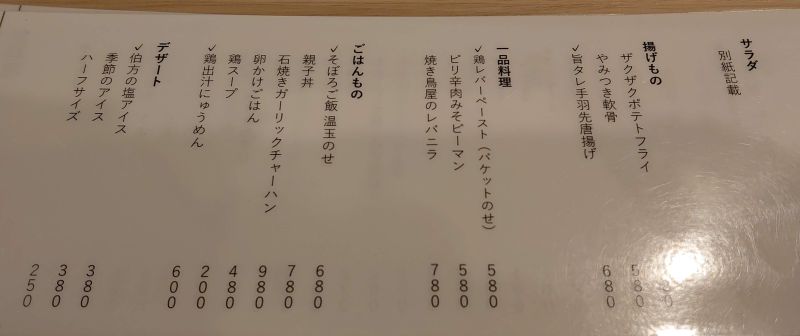 サラダ
別紙記載
揚げもの
ザクザクポテトフライ
やみつき軟骨 580
✓旨タレ手羽先唐揚げ 680
一品料理
✓鶏レバーペースト（バケットのせ） 580
ピリ辛肉みそピーマン 580
焼き鳥屋のレバニラ 780
ごはんもの
✓そぼろご飯 温玉のせ 680
親子丼 780
石焼きガーリックチャーハン 980
卵かけごはん 480
鶏スープ 200
✓鶏出汁にゅうめん 600
デザート
✓伯方の塩アイス 380
季節のアイス 380
ハーフサイズ 250